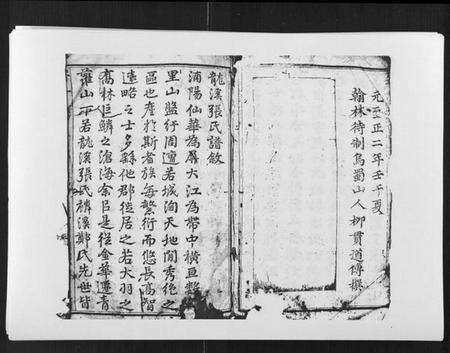 元至正二年壬午夏
翰林待制烏蜀山人柳貫道傳撰
龍溪張氏譜敘
浦陽仙華為屏大江為帶中横亘數
里山盤紆周遭若城洵天地間秀絕之
區也產於斯者族每繁衍而悠長高智
遠略之士多繇他郡徙居之若大羽之
喬林巨鱗之滄海余自是從金華遷青
蘿山下若龍溪張氏麟溪鄭氏先世皆